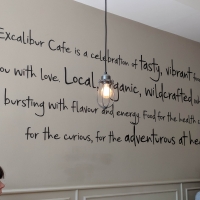 Excalibur Cafe is a celebration of tasty, vibrant
you with love. Local, organic, wildcrafted
bursting with flavour and energy. Food for the health
for the curious, for the adventurous at